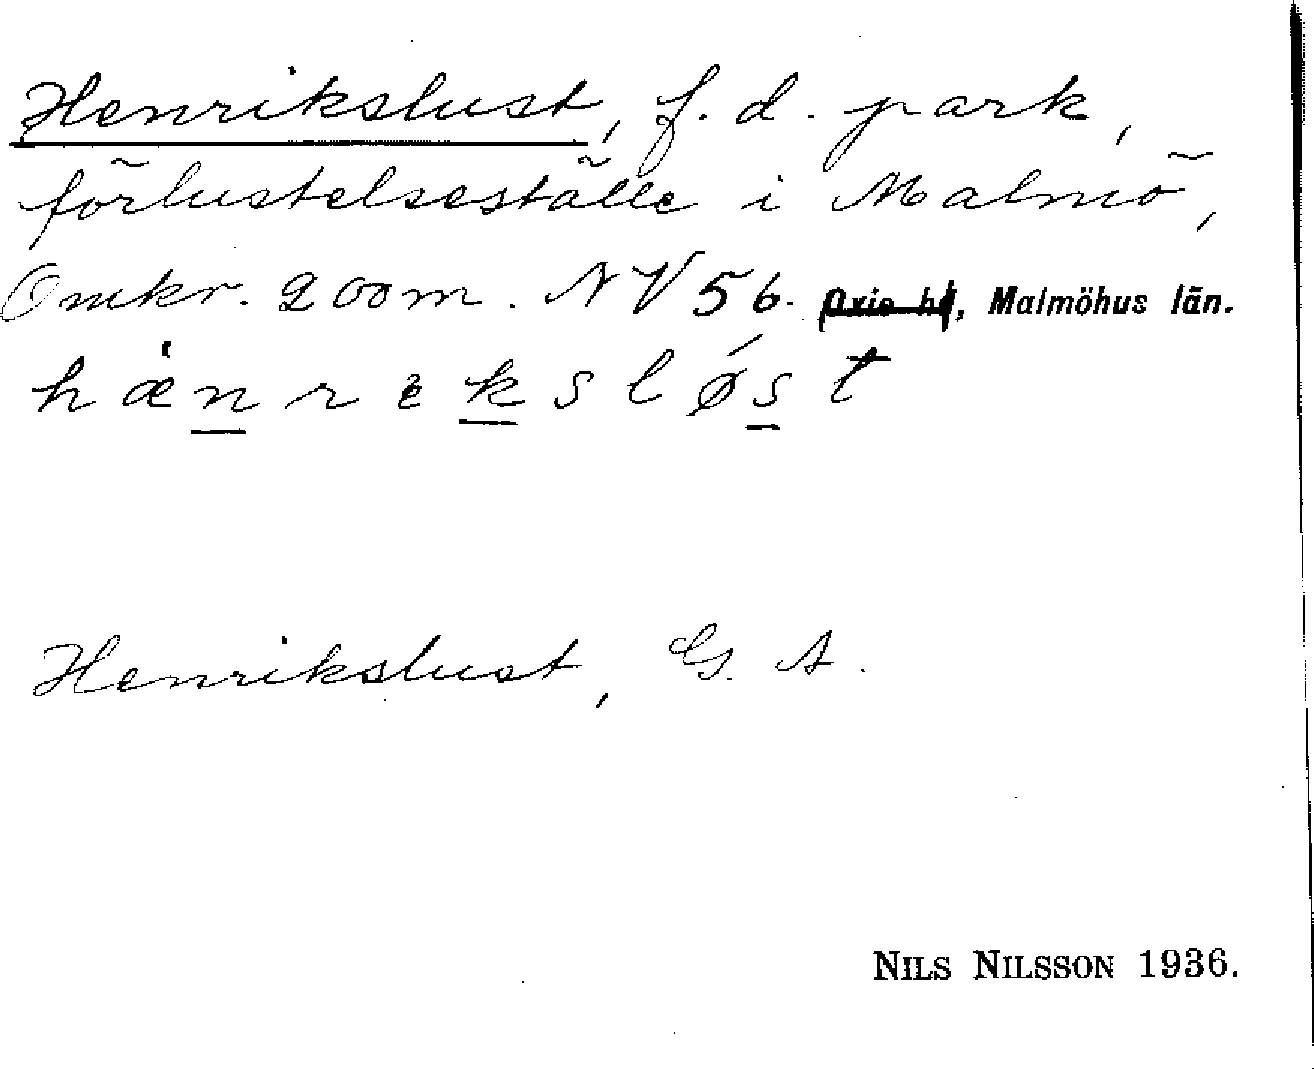 Henrikslust, f. d. park,
förlustelseställe i Malmö,
Omkr. 200 m. NV 56. Oxie hd, Malmöhus län.
hæ̀nreksløst
Henrikslust, G. A.
NILS NILSSON 1936.